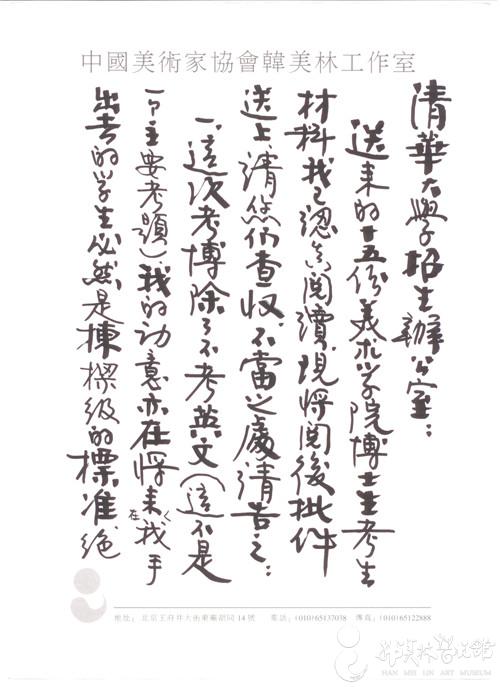 中國美術家協會韓美林工作室
清華大學招生辦公室：
送来的廿五份美术学院博士生考生
材料我已認真阅讀,現将阅後批件
送上,清您们查收,不當之處请告之：
一、這次考博除了不考英文(這不是
一个主要考題)我的动意亦在将来在我手
出去的学生必然是棟樑级的標准绝
地址： 北京王府井大街東廠胡同14號 電話：(010)65137038 傳真：(010)65122888
韩美林艺术馆
HAN MEI LIN ART MUSEUM